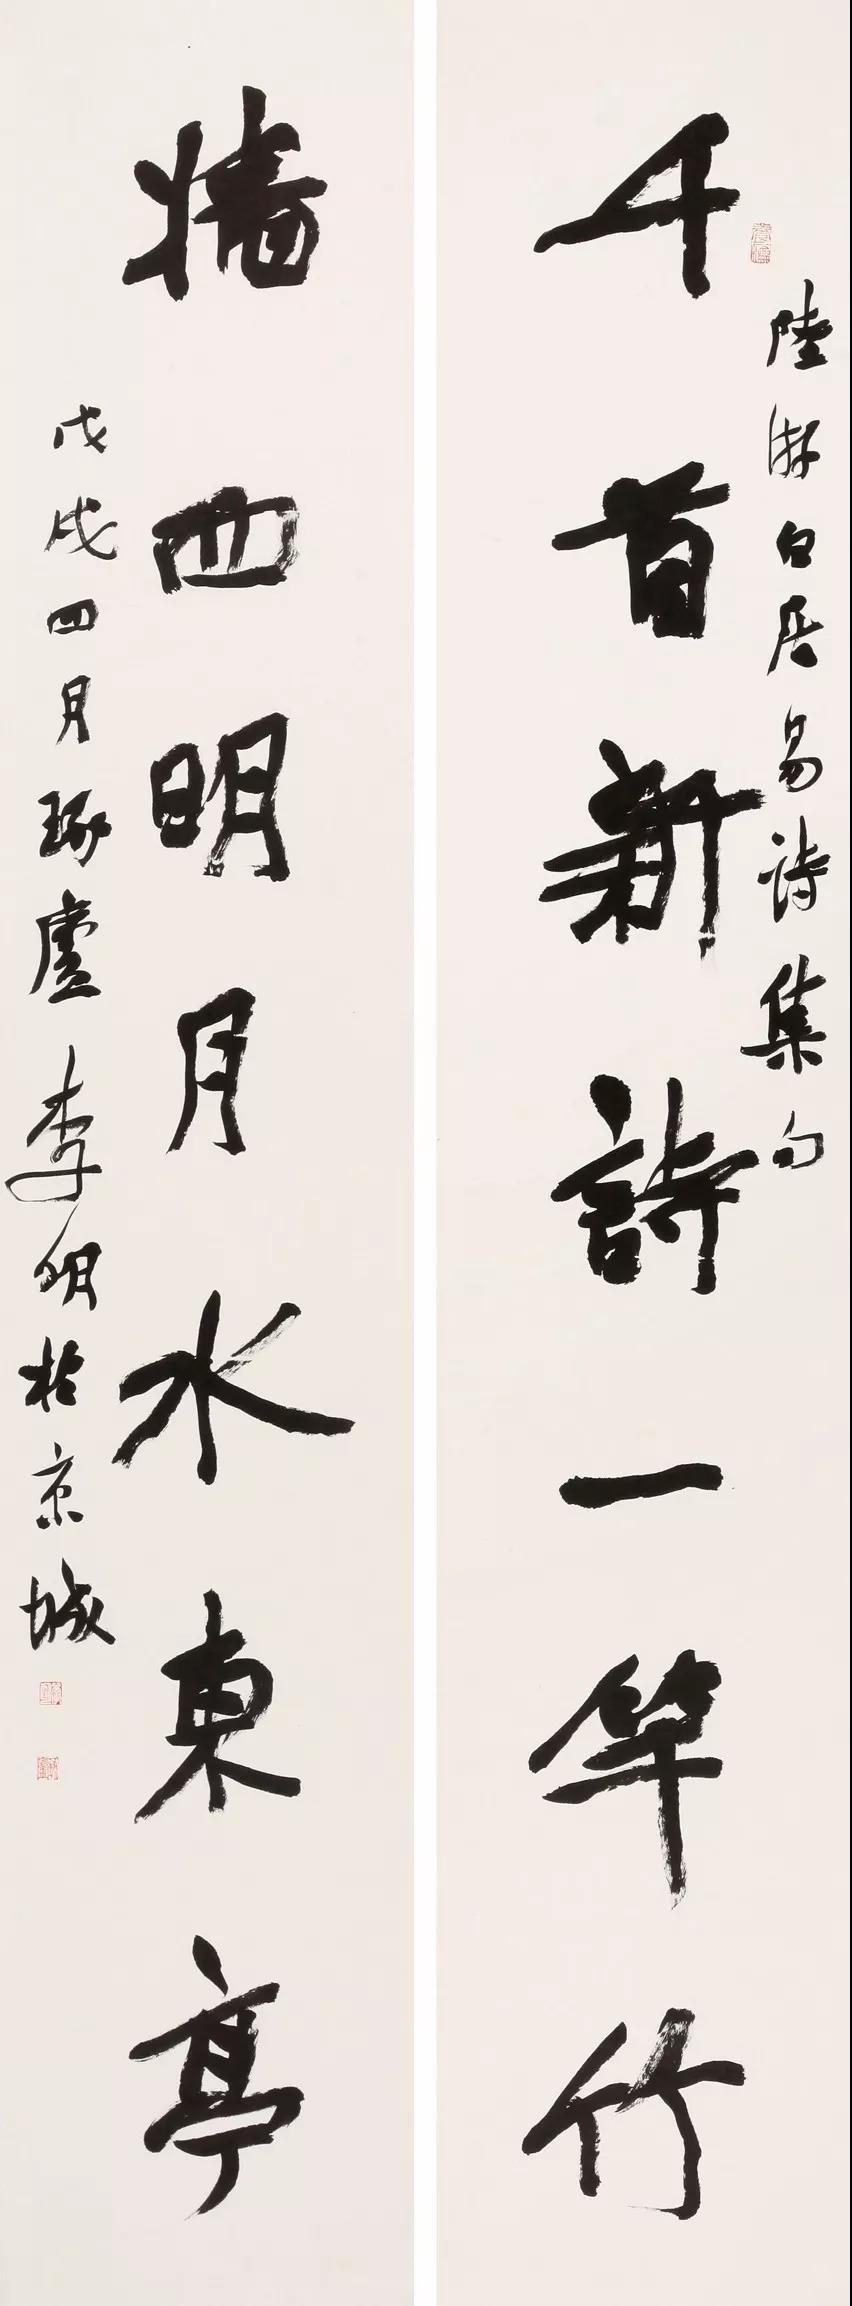 千首新詩一竿竹
陸游白居易詩集句
墻西明月水東亭
戊戌四月琢廬李明於京城